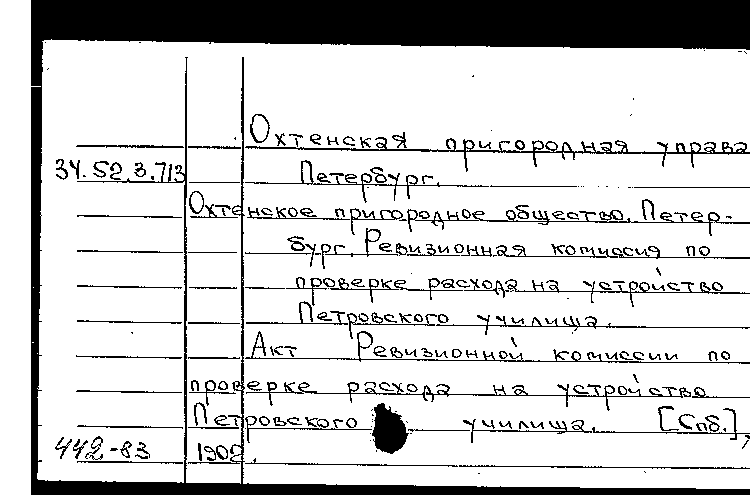 Охтенская пригородная управа
34.52.3.713 Петербург.
Охтенское пригородное общество. Петер-
бург. Ревизионная комиссия по
проверке расхода на устройство
Петровского училища.
Акт Ревизионной комиссии по
проверке расхода на устройство
Петровского училища. [Спб.],
442-83 1902.